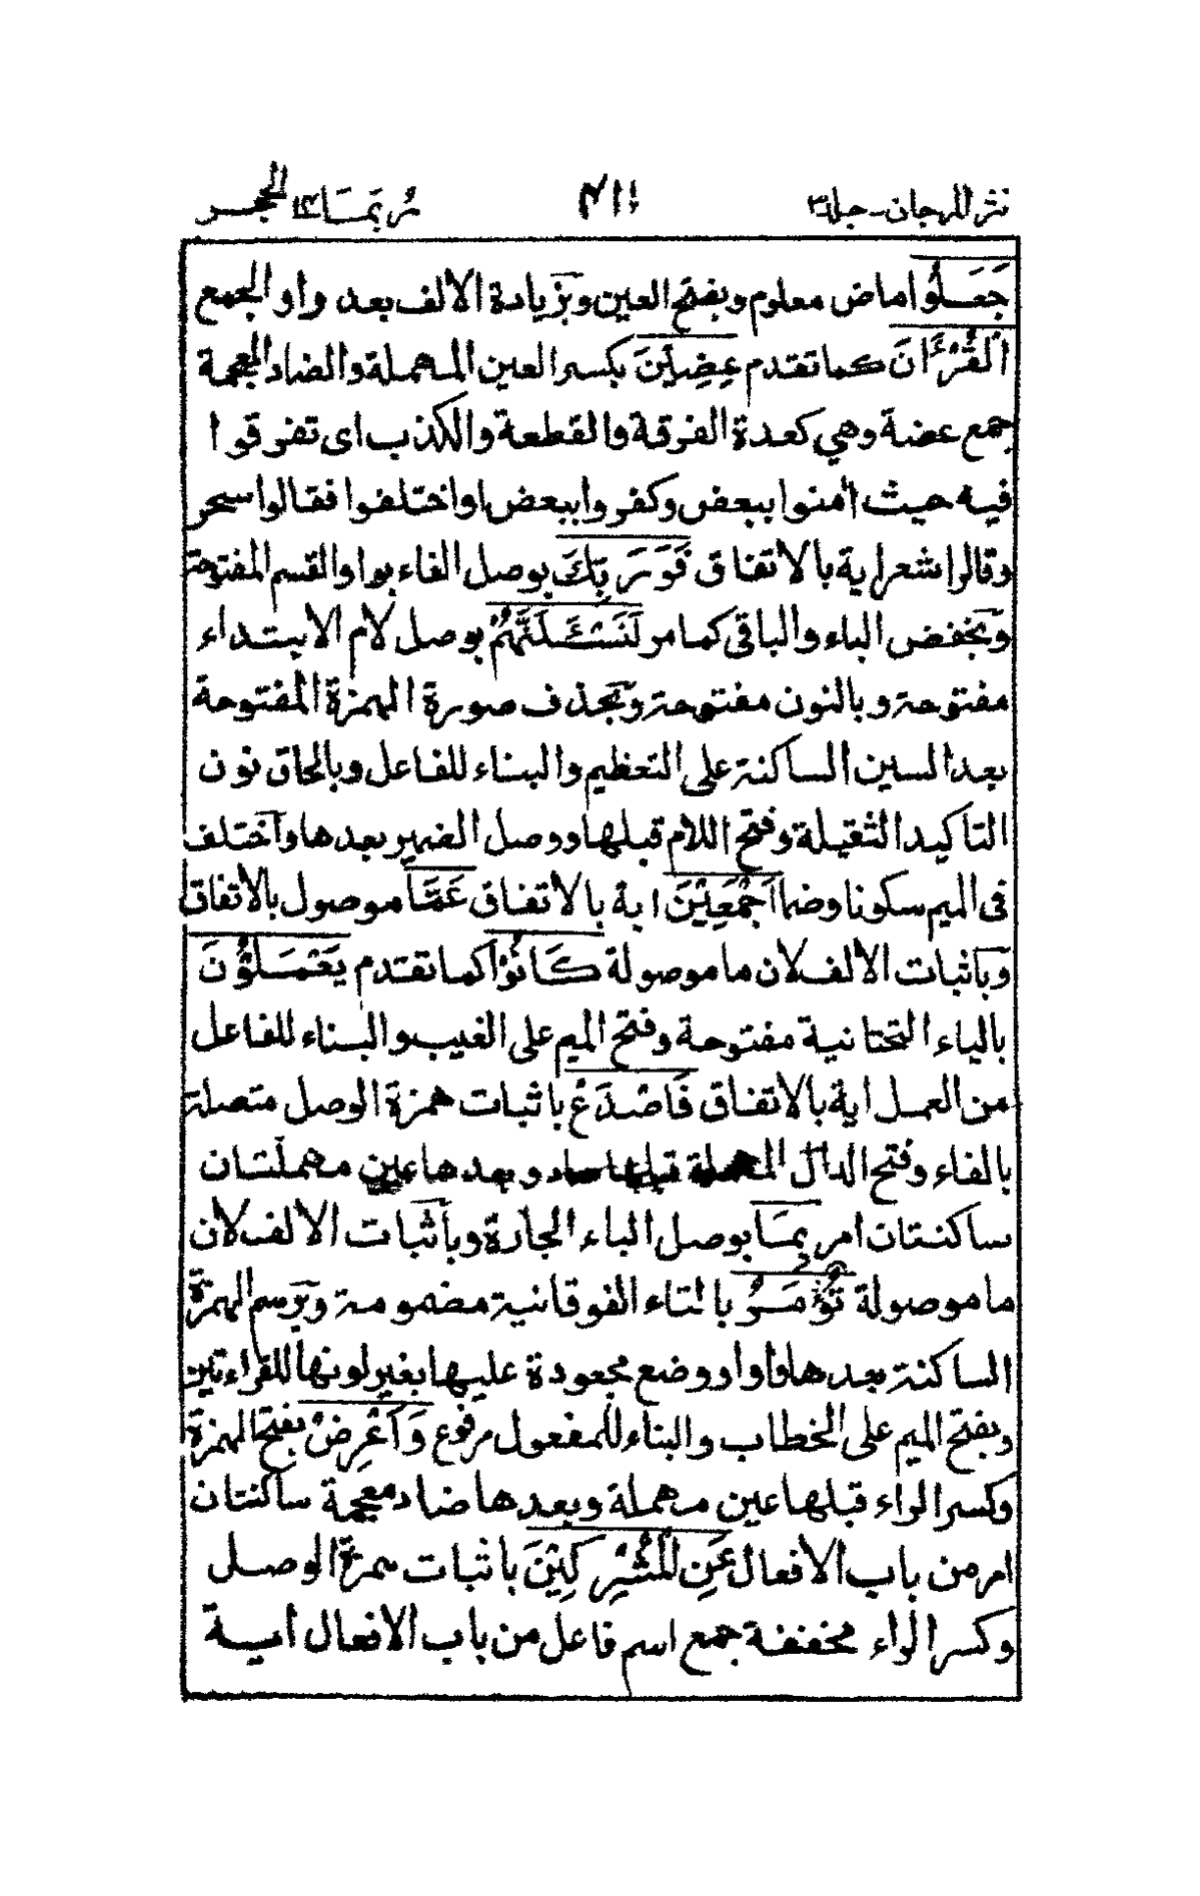 نثر المرجان - جلد٣ ٤١١ رُبَمَا١٤ الحجر
جَعَلُوا ماض معلوم وبفتح العين وبزيادة الالف بعد واو الجمع
الْقُرْءَانَ كما تقدم عِضِيْنَ بكسر العين المهملة والضاد المعجمة
جمع عضة وهي كعدة الفرقة والقطعة والكذب اى تفرقوا
فيه حيث اٰمنوا ببعض وكفروا ببعض او اختلفوا فقالوا سحر
وقالوا شعر اية بالاتفاق فَوَرَبِّكَ بوصل الفاء بواو القسم المفتوحة
وبخفض الباء والباقى كما مر لَنَسْـَٔلَنَّهُمْ بوصل لام الابتداء
مفتوحة وبالنون مفتوحة وبحذف صورة الهمزة المفتوحة
بعد السين الساكنة على التعظيم والبناء للفاعل وبالحاق نون
التاكيد الثقيلة وفتح اللام قبلها ووصل الضمير بعدها واختلف
فى الميم سكونا وضما اَجْمَعِيْنَ اية بالاتفاق عَمَّا موصول بالاتفاق
وباثبات الالف لان ما موصولة كَانُوْا كما تقدم يَعْمَلُوْنَ
بالياء التحتانية مفتوحة وفتح الميم على الغيب والبناء للفاعل
من العمل اية بالاتفاق فَاصْدَعْ باثبات همزة الوصل متصلة
بالفاء وفتح الدال المهملة قبلها صاد وبعدها عين مهملتان
ساكنتان امر بِمَا بوصل الباء الجارة وباثبات الالف لان
ما موصولة تُؤْمَرُ بالتاء الفوقانية مضمومة وبرسم الهمزة
الساكنة بعدها واوا ووضع مجعودة عليها بغير لونها للقراءتين
وبفتح الميم على الخطاب والبناء للمفعول مرفوع وَاَعْرِضْ بفتح الهمزة
وكسر الراء قبلها عين مهملة وبعدها ضاد معجمة ساكنتان
امر من باب الافعال عَنِ الْمُشْرِكِيْنَ باثبات همزة الوصل
وكسر الراء مخففة جمع اسم فاعل من باب الافعال اٰية